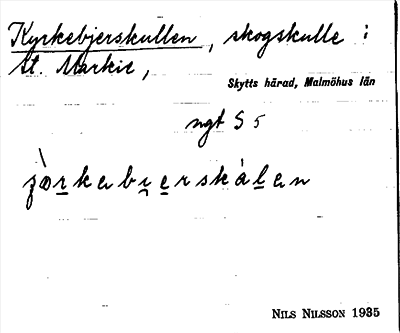 Kyrkebjerskullen, skogskulle i
St. Markie,
Skytts härad, Malmöhus län
ngt S 5
NILS NILSSON 1935